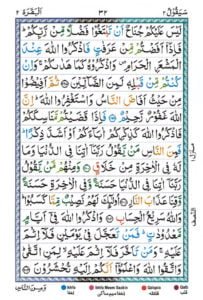 سَيَقُوْلُ ٢ ٣٢ اَلْبَقَرَة ٢
لَيْسَ عَلَيْكُمْ جُنَاحٌ اَنْ تَبْتَغُوْا فَضْلًا مِّنْ رَّبِّكُمْ ؕ
فَاِذَاۤ اَفَضْتُمْ مِّنْ عَرَفٰتٍ فَاذْكُرُوا اللّٰهَ عِنْدَ
الْمَشْعَرِ الْحَرَامِ ۪ وَاذْكُرُوْهُ كَمَا هَدٰىكُمْ ۚ وَاِنْ
كُنْتُمْ مِّنْ قَبْلِهٖ لَمِنَ الضَّآلِّيْنَ ۝ ثُمَّ اَفِيْضُوْا
مِنْ حَيْثُ اَفَاضَ النَّاسُ وَاسْتَغْفِرُوا اللّٰهَ ؕ اِنَّ
اللّٰهَ غَفُوْرٌ رَّحِيْمٌ ۝ فَاِذَا قَضَيْتُمْ مَّنَاسِكَكُمْ
فَاذْكُرُوا اللّٰهَ كَذِكْرِكُمْ اٰبَآءَكُمْ اَوْ اَشَدَّ ذِكْرًا ؕ
فَمِنَ النَّاسِ مَنْ يَّقُوْلُ رَبَّنَاۤ اٰتِنَا فِي الدُّنْيَا
وَمَا لَهٗ فِي الْاٰخِرَةِ مِنْ خَلَاقٍ ۝ وَمِنْهُمْ مَّنْ يَّقُوْلُ
رَبَّنَاۤ اٰتِنَا فِي الدُّنْيَا حَسَنَةً وَّفِي الْاٰخِرَةِ حَسَنَةً
وَّقِنَا عَذَابَ النَّارِ ۝ اُولٰٓئِكَ لَهُمْ نَصِيْبٌ مِّمَّا كَسَبُوْا ؕ
وَاللّٰهُ سَرِيْعُ الْحِسَابِ ۝ وَاذْكُرُوا اللّٰهَ فِيْۤ اَيَّامٍ
مَّعْدُوْدٰتٍ ؕ فَمَنْ تَعَجَّلَ فِيْ يَوْمَيْنِ فَلَاۤ اِثْمَ
عَلَيْهِ ۚ وَمَنْ تَاَخَّرَ فَلَاۤ اِثْمَ عَلَيْهِ ۙ لِمَنِ اتَّقٰى ؕ
وَاتَّقُوا اللّٰهَ وَاعْلَمُوْۤا اَنَّكُمْ اِلَيْهِ تُحْشَرُوْنَ ۝
وَمِنَ النَّاسِ